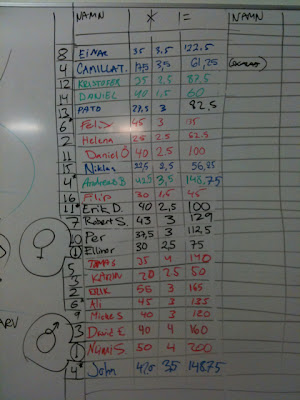 NAMN X = NAMN
8 EiMAR 35 3,5 122,5
4 CAMILLA T. 17,5 3,5 61,25
12 KRISTOFER 25 3,5 87,5
14 DANIEL 40 1,5 60
13 PATO 27,5 3 82,5
6* Felix 45 3
2 Helena 25 2.5 62.5
11 Daniel Ö 40 2.5 100
15 Niklas 22,5 2,5 56,25
4* Andreas B 42,5 3,5 148,75
16 Filip 30 1.5 45
11* Erik D. 40 2,5 100
7 Robert S. 43 3 129
10 Per 37,5 3 112,5
1 Ellinor 30 2.5 75
5 TOMAS 35 4 140
3 KARIN 20 2.5 50
2 ERIK 55 3 165
6* Ali 45 3 135
9 Micke S 40 3 120
3 David E 40 4 160
ARV
1 50 4 200
4* John 42,5 3,5 148,75